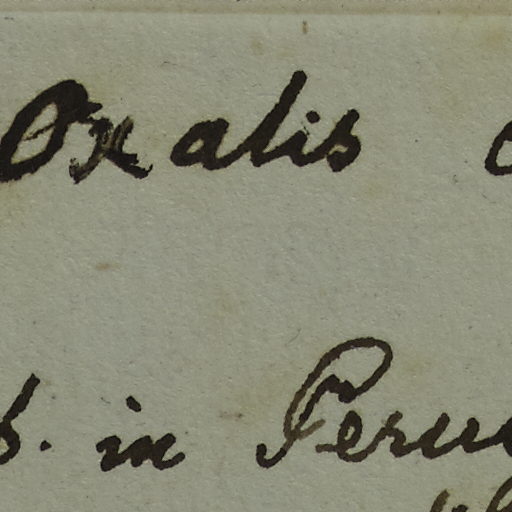 Oxalis
in Peru